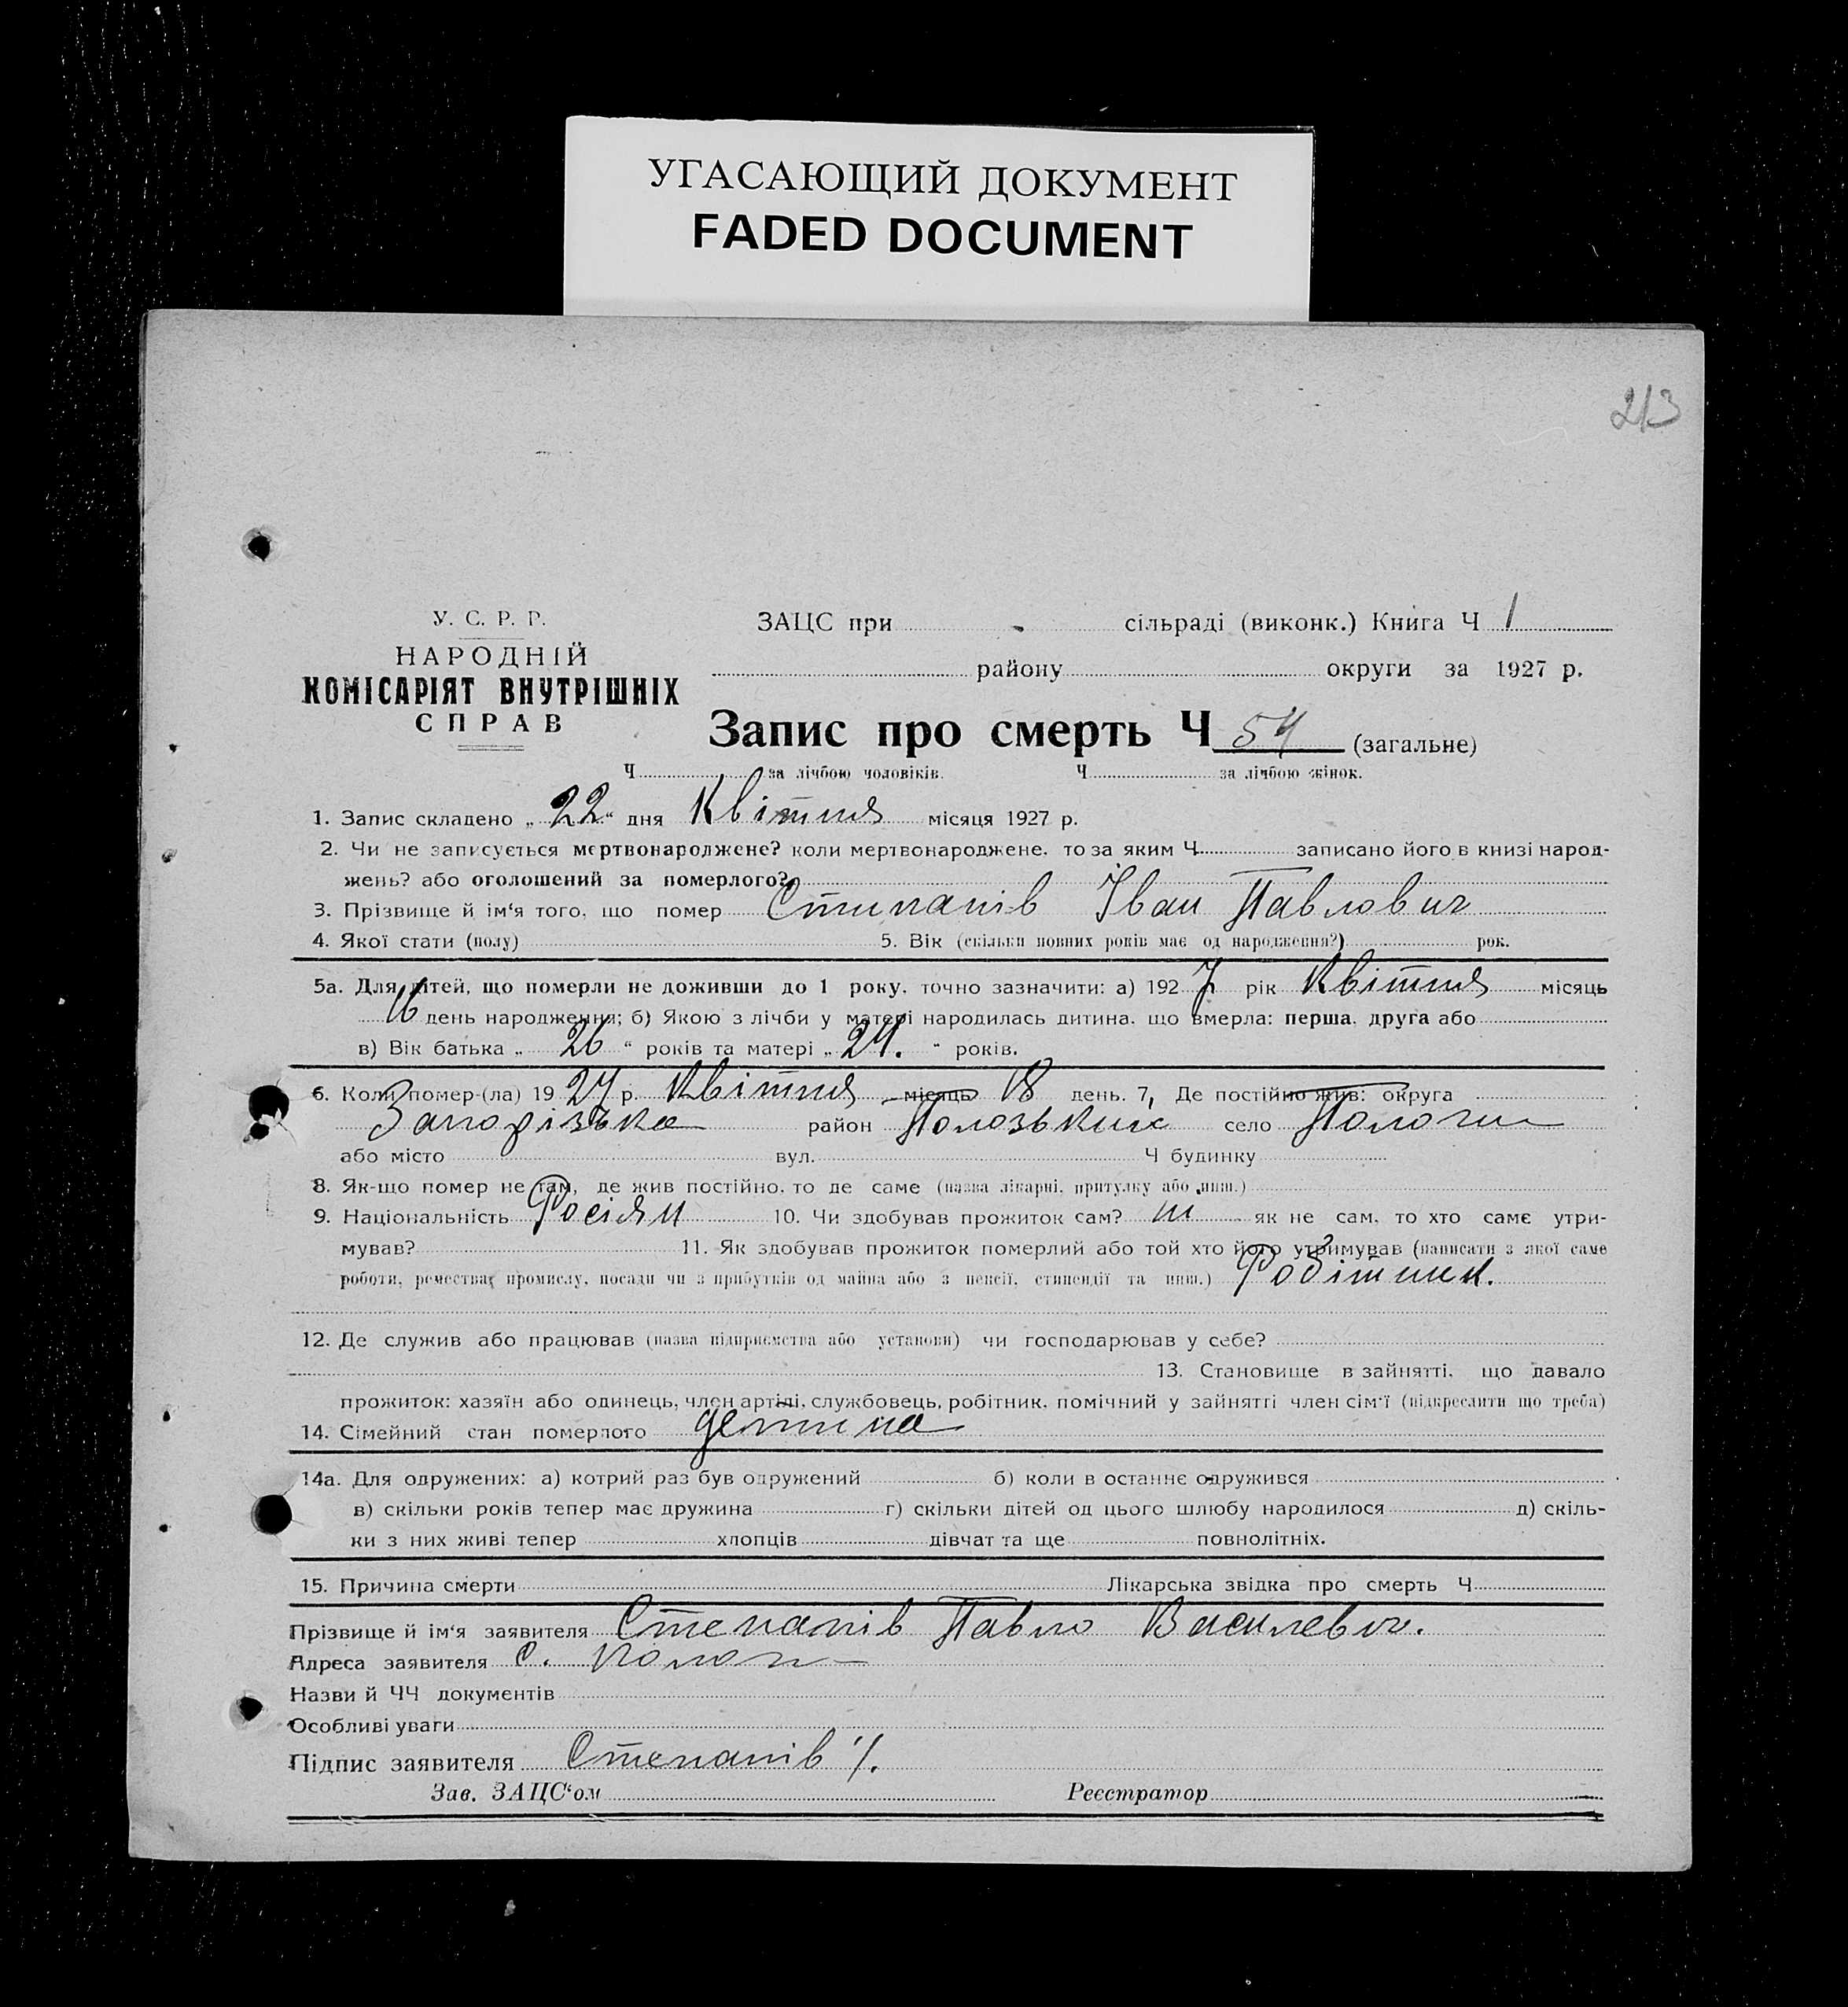 УГАСАЮЩИЙ ДОКУМЕНТ
FADED DOCUMENT
213
У. С. Р. Р.
НАРОДНІЙ
КОМІСАРІЯТ ВНУТРІШНІХ
СПРАВ
ЗАЦС при сільраді (виконк.) Книга Ч 1
району округи за 1927 р.
Запис про смерть Ч 54 (загальне)
Ч за лічбою чоловіків. Ч за лічбою жінок.
1. Запис складено „22“ дня Квітня місяця 1927 р.
2. Чи не записується мертвонароджене? коли мертвонароджене, то за яким Ч записано його в книзі народ-
жень? або оголошений за померлого?
3. Прізвище й ім‘я того, що помер Стипанів Іван Павлович
4. Якої стати (полу) 5. Вік (скільки повних років має од народження?) рок.
5а. Для дітей, що померли не доживши до 1 року, точно зазначити: а) 1927 рік Квітня місяць
16 день народження; б) Якою з лічби у матері народилась дитина, що вмерла: перша, друга або
в) Вік батька „26“ років та матері „24.“ років.
6. Коли помер-(ла) 1927 р. Квітня місяць 18 день. 7, Де постійно жив: округа
Запорізька район Полозький село Пологи
або місто вул. Ч будинку
8. Як-що помер не там, де жив постійно, то де саме (назва лікарні, притулку або инш.)
9. Національність Росіян 10. Чи здобував прожиток сам? ні як не сам, то хто саме утри-
мував? 11. Як здобував прожиток померлий або той хто його утримував (написати з якої саме
роботи, ремества, промислу, посади чи з прибутків од майна або з пенсії, стипендії та инш.) Робітник.
12. Де служив або працював (назва підприємства або установи) чи господарював у себе?
13. Становище в зайнятті, що давало
прожиток: хазяїн або одинець, член артілі, службовець, робітник, помічний у зайнятті член сім‘ї (підкреслити що треба)
14. Сімейний стан померлого детина
14а. Для одружених: а) котрий раз був одружений б) коли в останнє одружився
в) скільки років тепер має дружина г) скільки дітей од цього шлюбу народилося д) скіль-
ки з них живі тепер хлопців дівчат та ще повнолітніх.
15. Причина смерти Лікарська звідка про смерть Ч
Прізвище й ім‘я заявителя Степанів Павло Василевич.
Адреса заявителя с. Пологи
Назви й ЧЧ документів
Особливі уваги
Підпис заявителя Степанів
Зав. ЗАЦС‘ом Реєстратор